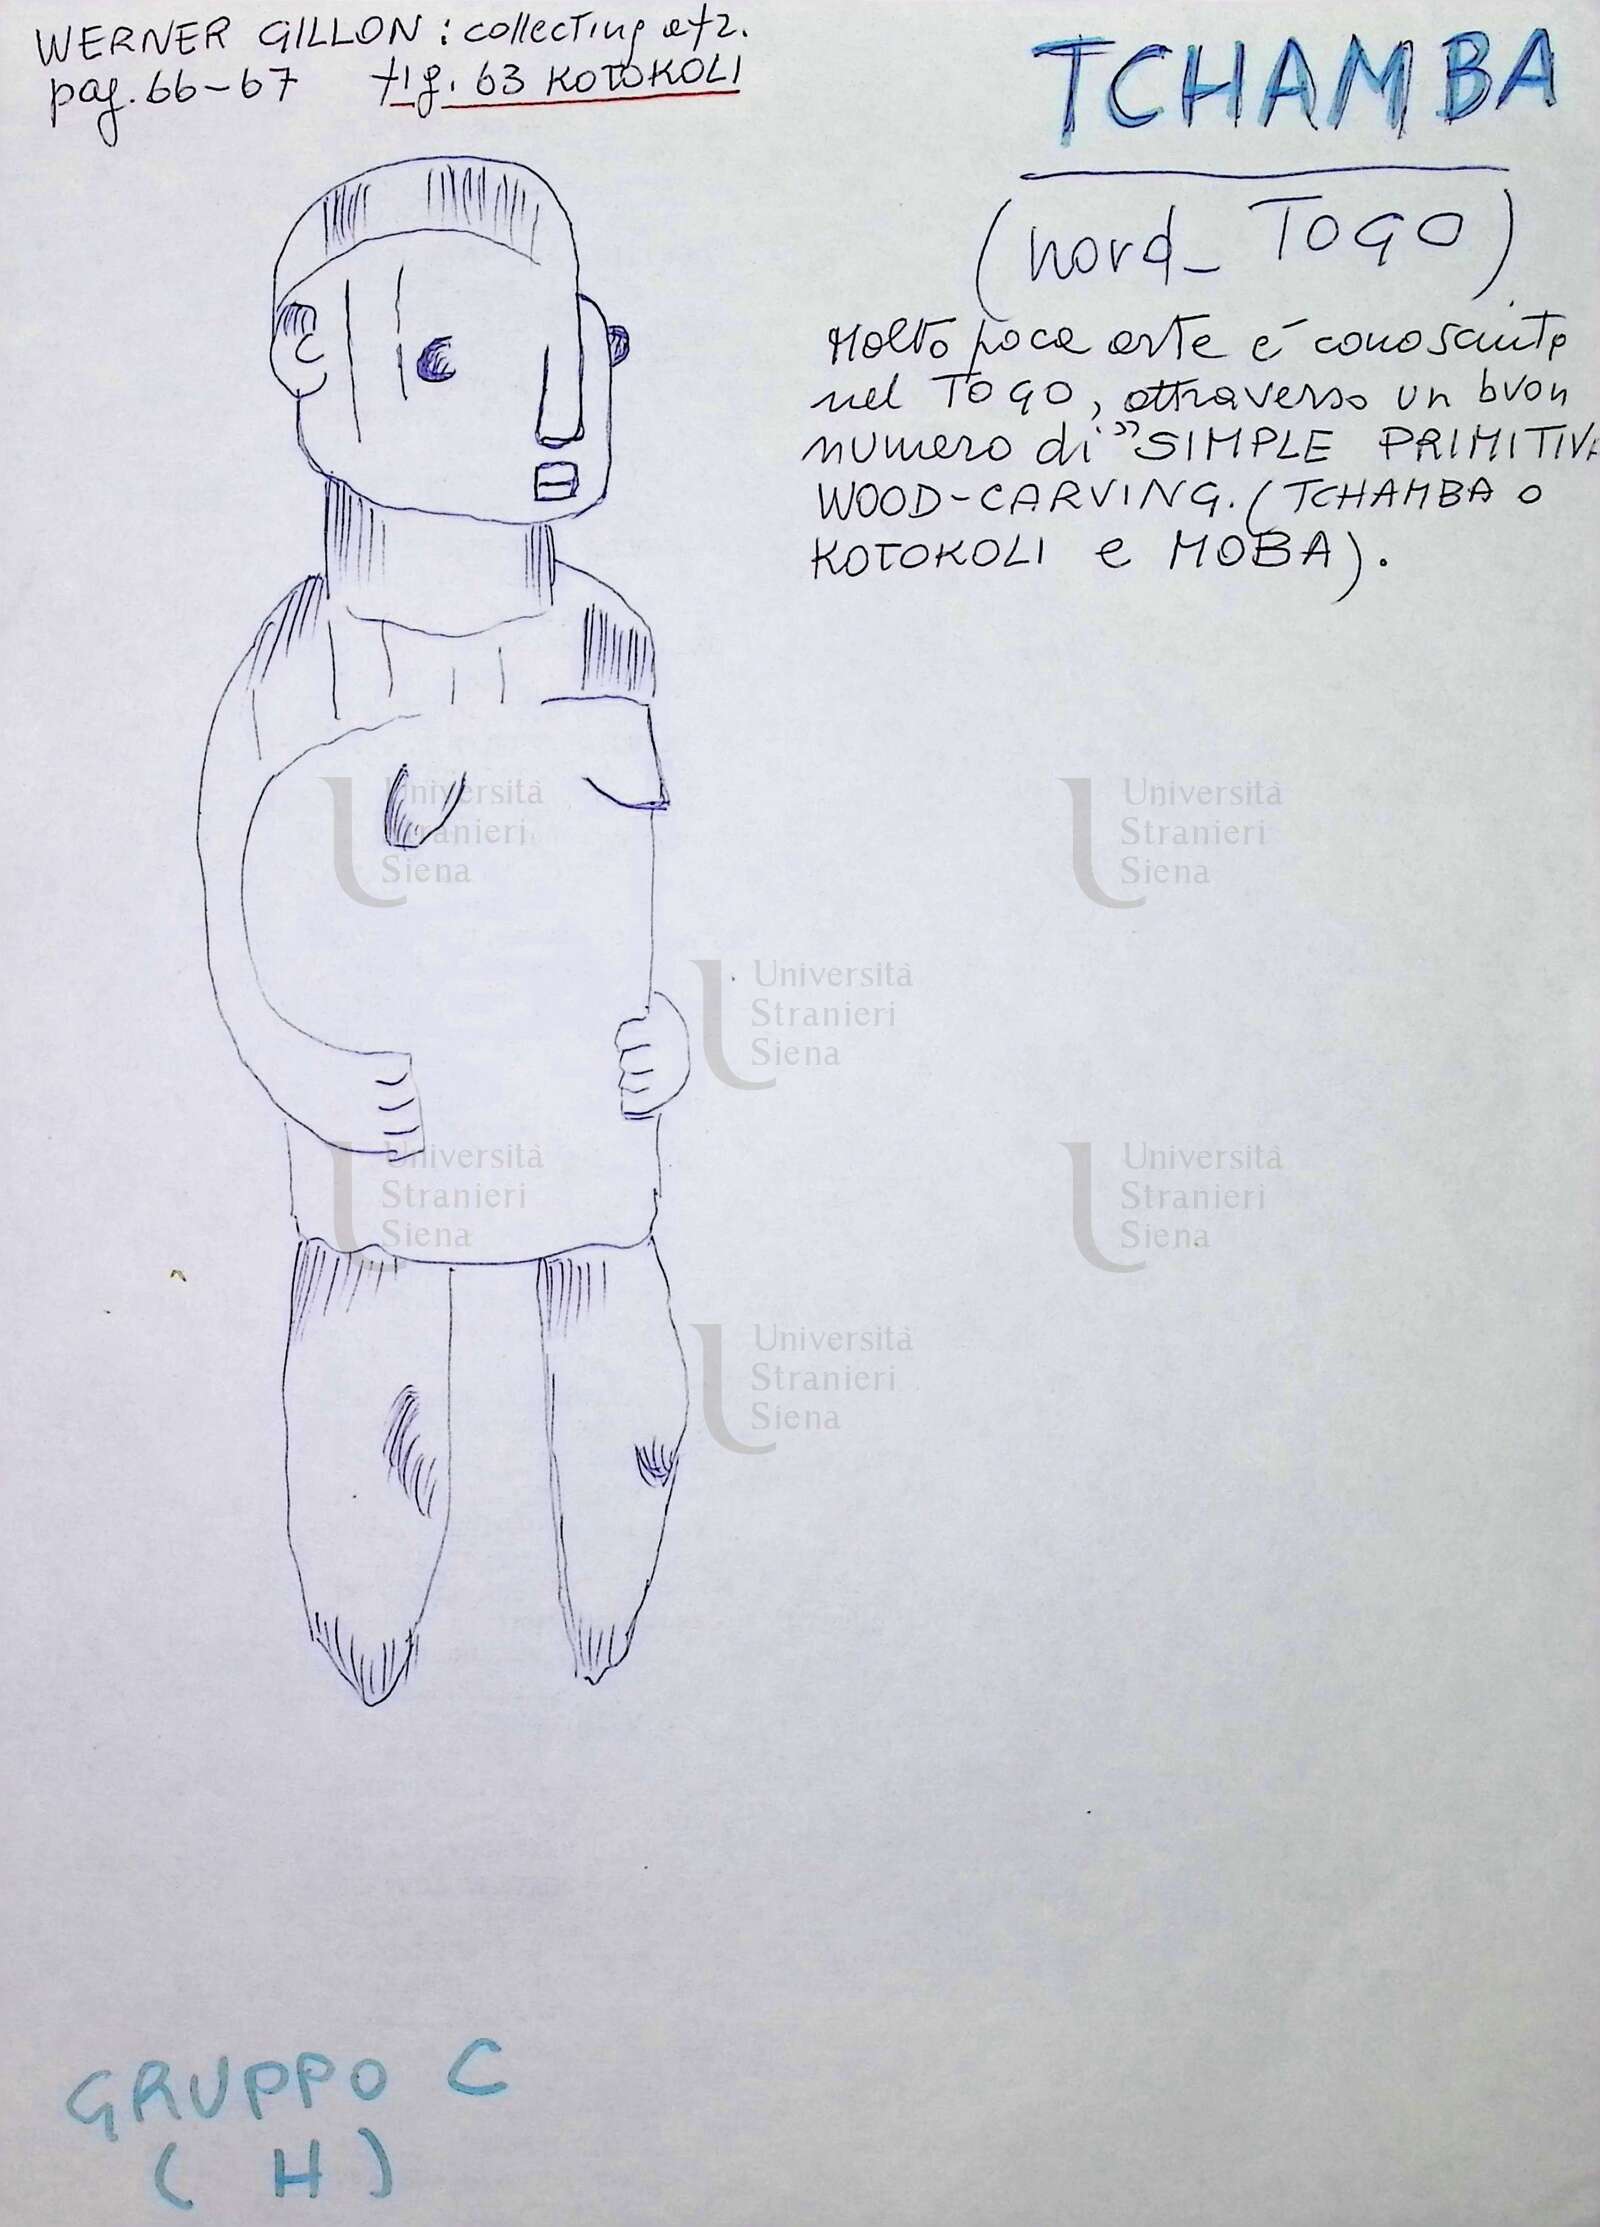 WERNER GILLON: collecting afr.
pag. 66-67 fig. 63 KOTOKOLI
TCHAMBA
(nord_ TOGO)
Molto poca arte é conosciuta
nel TOGO, attraverso un buon
numero di "SIMPLE PRIMITIVE
WOOD-CARVING. (TCHAMBA o
KOTOKOLI e MOBA).
Università
Stranieri
Siena
Università
Stranieri
Siena
Università
Stranieri
Siena
Università
Stranieri
Siena
Università
Stranieri
Siena
Università
Stranieri
Siena
GRUPPO C
(H)